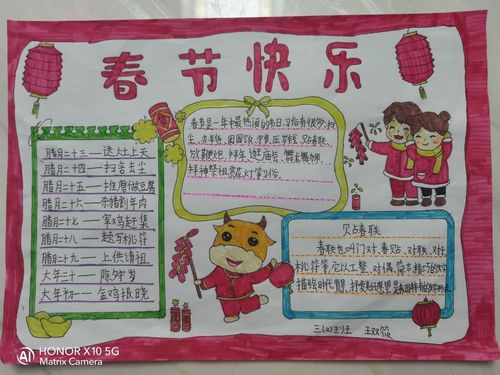 春节快乐
腊月二十三——送灶上天
腊月二十四——扫舍去尘
腊月二十五——推磨做豆腐
腊月二十六——杀猪割年肉
腊月十七——宰鸡赶集
腊月十八——题写桃符
腊月二十九——上供请祖
大年三十——除夕守岁
大年初一——金鸡报晓
春节是一年中最热闹的节日,习俗有很多:扫
尘、办年货、团圆饭、守岁、压岁钱、贴春联、
放鞭炮、拜年、逛庙会、舞龙舞狮、
拜神祭祖赏花灯等习俗。
贴春联
春联也叫门对、春贴、对联、对子
桃符等,它以工整、对偶、简洁、精巧的文字
描绘时代背景,抒发美好愿望
三(2)班
HONOR X10 5G
Matrix Camera
AI